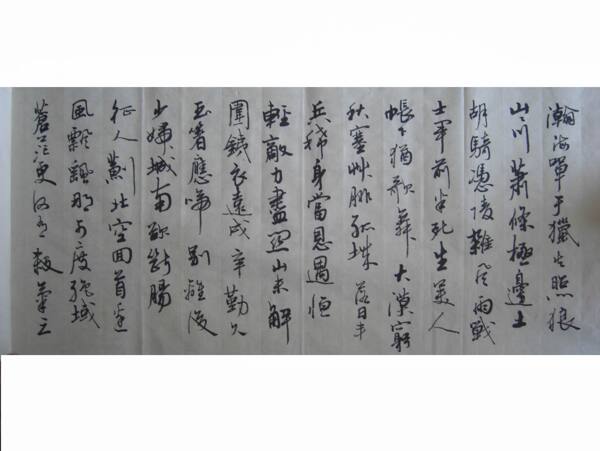 瀚海單于獵火照狼
山川蕭條極邊土
胡騎憑陵雜風雨戰
士軍前半死生美人
帳下猶歌舞大漠窮
秋塞艸腓孤城落日斗
兵稀身當恩遇恒
輕敵力盡關山未解
圍鐵衣遠戍辛勤久
玉箸應啼別離後
少婦城南欲斷腸
征人薊北空回首邊
風飄飄那可度絕域
蒼茫更何有殺氣三